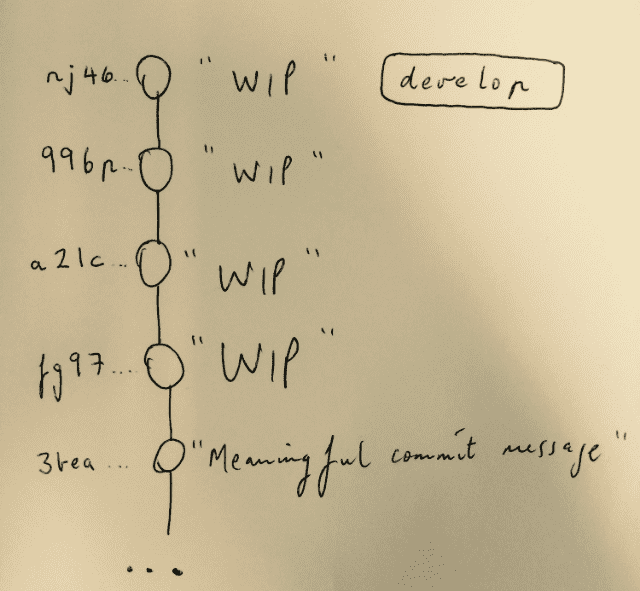 nj46... "WIP" develop
996p... "WIP"
a21c... "WIP"
fg97.... "WIP"
3tea ... "Meaningful commit message"
...